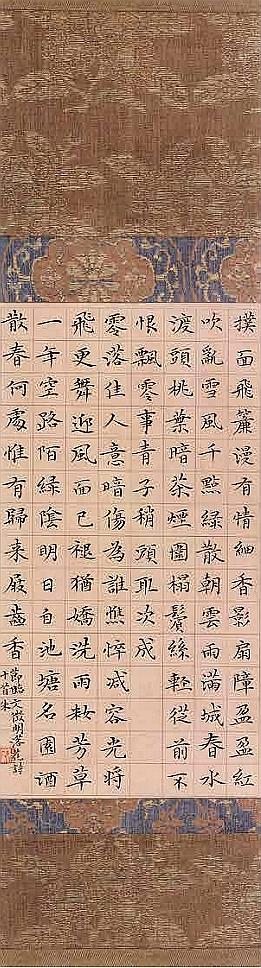 撲面飛簾漫有情細香影扇障盈盈紅
吹亂雪風千點綠散朝雲雨滿城春水
渡頭桃葉暗茶煙圍榻鬢絲輕從前不
恨飄零事青子稍頭取次成
零落佳人意暗傷為誰憔悴減容光將
飛更舞迎風面已褪猶嬌洗雨妝芳草
一年空路陌綠陰明日自池塘名園酒
散春何處惟有歸來屐齒香
節臨文徵明落花詩
十首